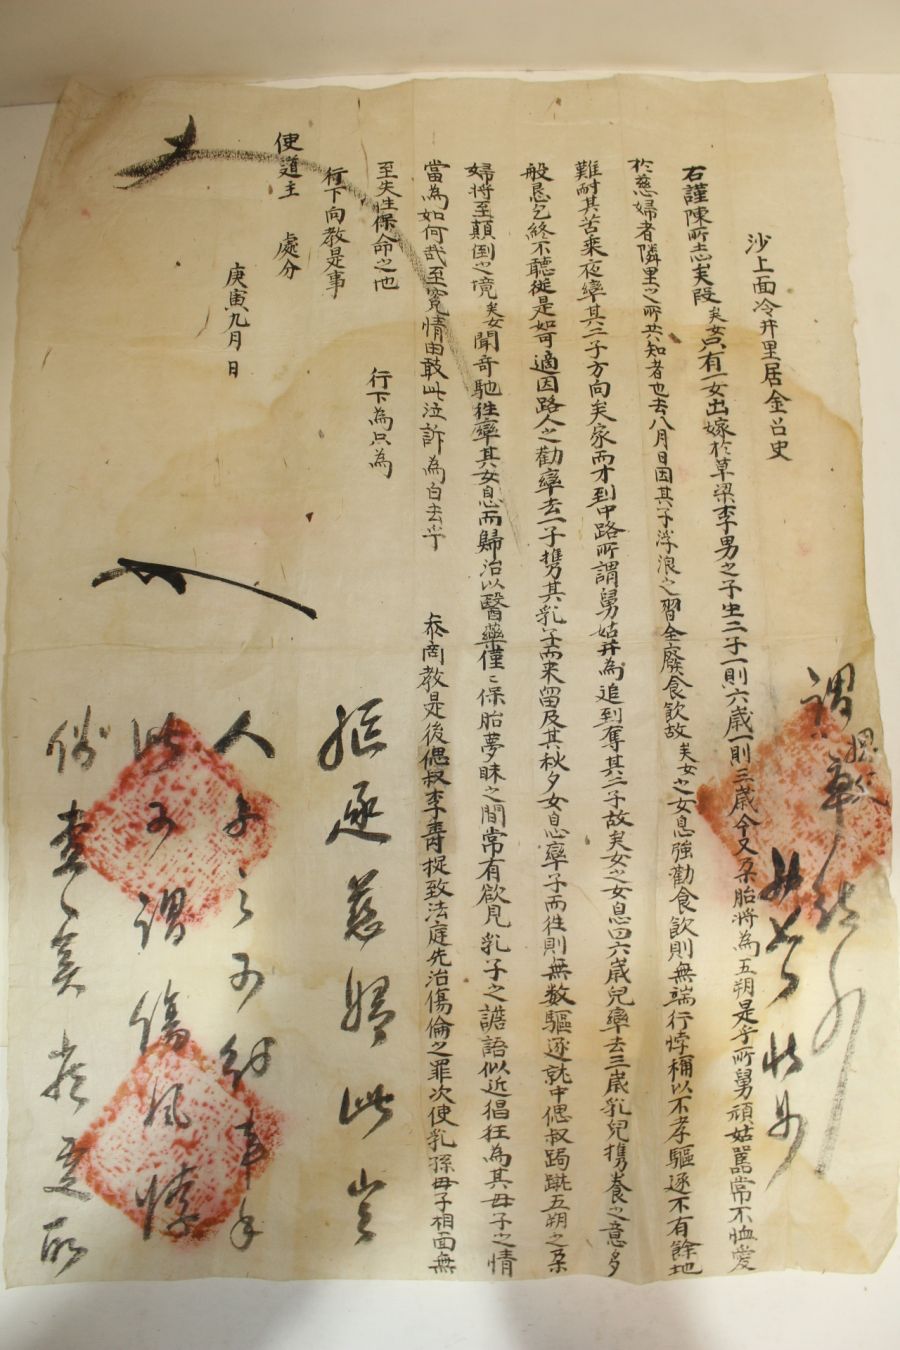 沙上面冷井里居金召史
右謹陳所志矣段矣女只有一女出嫁於草梁李男之子生二子一則六歲一則三歲今又孕胎將為五朔是乎所舅頑姑嚚常不恤愛
於慈婦者隣里之所共知者也去八月日因其子浮浪之習全廢食飲故矣女之女息強勸食飲則無端行悖稱以不孝驅逐不有餘地
難耐其苦乘夜率其二子方向矣家而才到中路所謂舅姑并為追到奪其二子故矣女之女息曰六歲兒率去三歲乳兒携養之意多
般恳乞終不聽從是如可適因路人之勸率去一子携其乳子而来留及其秋夕女息率子而徃則無数驅逐就中偲叔踢蹴五朔之孕
婦將至顛倒之境矣女聞奇馳徃率其女息而歸治以醫藥僅々保胎夢昧之間常有欲見乳子之譫語似近猖狂為其母子之情
當為如何哉至寃情由敢此泣訴為白去乎 叅商教是後偲叔李壽捉致法庭先治傷倫之罪次使乳孫母子相面無
至失性保命之地 行下為只為
行下向教是事
使道主 處分
庚寅九月 日
驅逐慈婦此豈
人
此可謂傷風